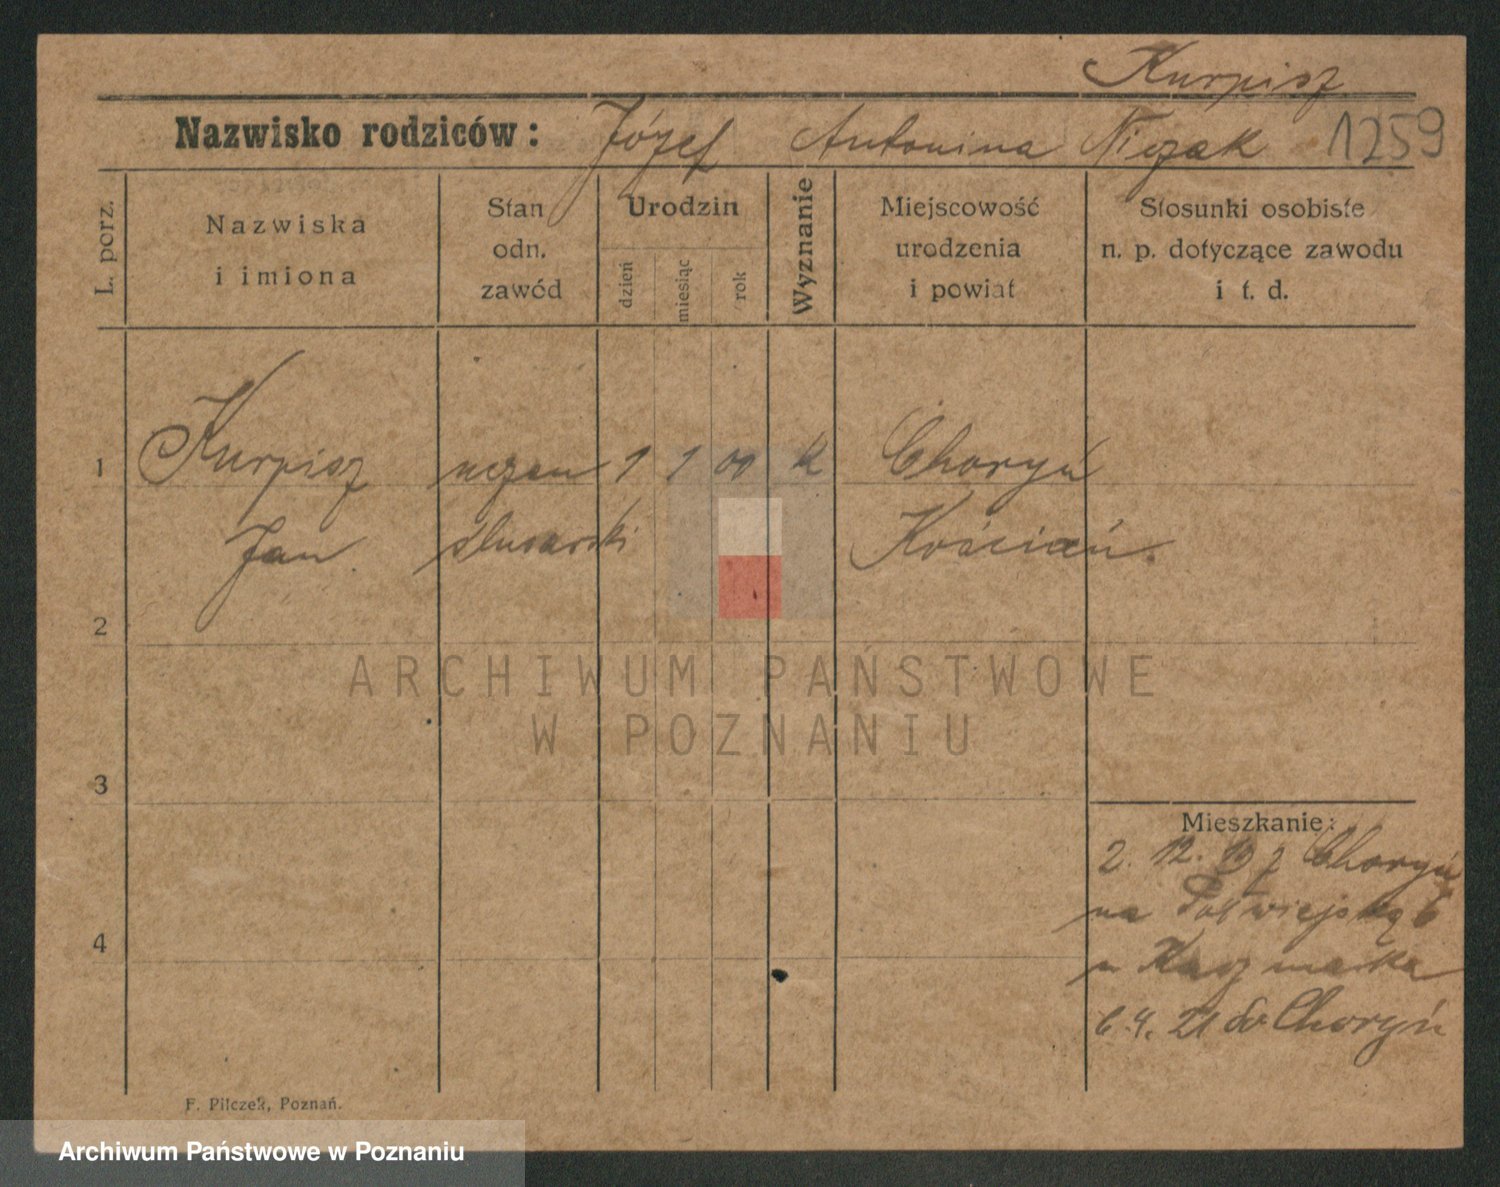 Kurpisz
Nazwisko rodziców: Józef Antonina Niezak 1259
L. porz.
Nazwiska
i imiona
Stan
odn.
zawód
Urodzin
dzień
miesiąc
rok
Wyznanie
Miejscowość
urodzenia
i powiat
Stosunki osobiste
n. p. dotyczące zawodu
i t. d.
1 Kurpisz uczeń 1 1 01 k Choryń
Jan ślusarski Kościan.
2
3
4
ARCHIWUM PAŃSTWOWE
W POZNANIU
Mieszkanie:
2. 12. z Choryń
na Półwiejską 6
u Kaczmarka
6.4. 21 do Choryń
F. Pilczek, Poznań.
Archiwum Państwowe w Poznaniu